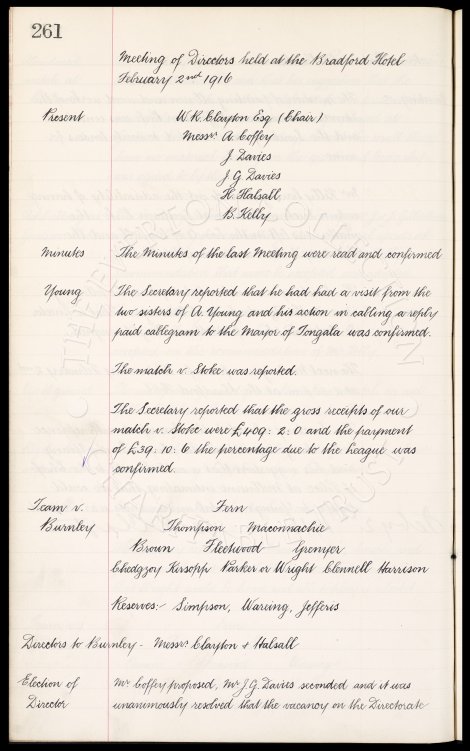 261
Meeting of Directors held at the Bradford Hotel
February 2nd 1916
Present W. R. Clayton Esq (Chair)
Messrs. A. Coffey
J Davies
J. G. Davies
H. Halsall
B. Kelly
Minutes The Minutes of the last Meeting were read and confirmed
Young The Secretary reported that he had had a visit from the
two sisters of A. Young and his action in calling a reply
paid cablegram to the Mayor of Tongala was confirmed.
The match v. Stoke was reported.
The Secretary reported that the gross receipts of our
match v. Stoke were £409: 2: 0 and the payment
of £39: 10: 6 the percentage due to the League was
confirmed.
Team v. Fern
Burnley Thompson Maconnachie
Brown Fleetwood Grenyer
Chedgzoy Kirsopp Parker or Wright Clennell Harrison
Reserves:- Simpson, Wareing, Jefferis
Directors to Burnley - Messrs. Clayton & Halsall
Election of Mr. Coffey proposed, Mr J. G. Davies seconded and it was
Director unanimously resolved that the vacancy on the Directorate